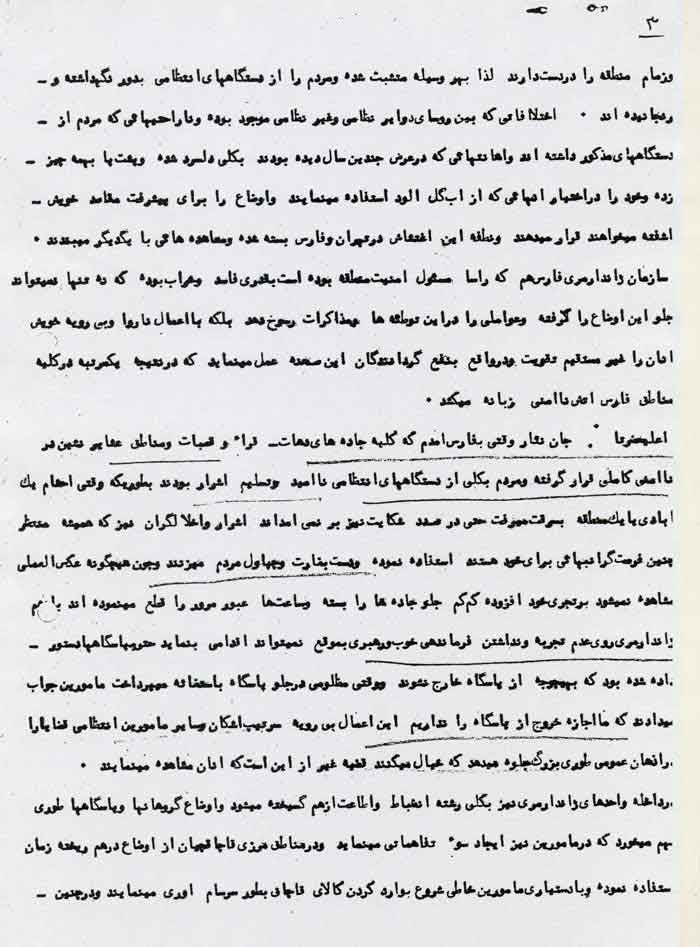 ۳
وزمام منطقه را دردست دارند لذا بهر وسیله متشبث شده ومردم را از دستگاههای انتظامی بدور نگهداشته و –
رنجانیده اند ۰ اختلافاتی که بین روسای دوایر نظامی وغیر نظامی موجود بوده وناراحتیهائی که مردم از –
دستگاههای مذکور داشته اند واهانتهائی که درعرض چندین سال دیده بودند بکلی دلسرد شده وپشت پا بهمه چیز –
زده وخود را دراختیار انهائی که از اب گل الود استفاده مینمایند واوضاع را برای پیشرفت مقاصد خویش –
اشفته میخواهند قرار میدهند ونطفه این اغتشاش درتهران وفارس بسته شده ومعاهده هائی با یگدیگر میبندند ۰
سازمان ژاندارمری فارس هم که راسا مسئول امنیت منطقه بوده است بقدری فاسد وخراب بوده که نه تنها نمیتواند
جلو این اوضاع را گرفته وعواملی را دراین توطئه ها ومذاکرات رسوخ دهد بلکه با اعمال ناروا وبی رویه خویش
انان را غیر مستقیم تقویت ودرواقع بنفع گردانندگان این صحنه عمل مینماید که درنتیجه یکمرتبه درکلیه
مناطق فارس اتش ناامنی زبانه میکشد ۰
اعلیحضرتا . جان نثار وقتی بفارس امدم که کلیه جاده های دهات – قراء و قصبات ومناطق عشایر نشین در
ناامنی کاملی قرار گرفته ومردم بکلی از دستگاههای انتظامی ناامید وتسلیم اشرار بودند بطوریکه وقتی احشام یك
ابادی یا یك منطقه بسرقت میرفت حتی در صدد شکایت نیز بر نمی امدند اشرار واخلالگران نیز که همیشه منتظر
چنین فرصت گرانبهائی برای خود هستند استفاده نموده ودست بغارت وچپاول مردم میزنند وچون هیچگونه عکس العملی
مشاهده نمیشود برتجری خود افزوده کم کم جلو جاده ها را بسته وساعت ها عبور مرور را قطع مینموده اند
ژاندارمری روی عدم تجربه ونداشتن فرماندهی خوب ورهبری بموقع نمیتواند اقدامی بنماید حتی بپاسگاهها دستور –
داده شده بود که بهیچوجه از پاسگاه خارج نشوند ووقتی مظلومی درجلو پاسگاه باستغاثه میپرداخت مامورین جواب
میدادند که ما اجازه خروج از پاسگاه را نداریم این اعمال بی رویه سرتیپ اشکان وسایر مامورین انتظامی قضایا را
دراذهان عمومی طوری بزرگ جلوه میدهد که خیال میکنند قضیه غیر از این است که انان مشاهده مینمایند ۰
درداخله واحدهای ژاندارمری نیز بکلی رشته انضباط واطاعت ازهم گسیخته میشود واوضاع گروهانها وپاسگاهها طوری
بهم میخورد که درمامورین نیز ایجاد سوء تفاهماتی مینماید ودرمناطق مرزی قاچاقچیان از اوضاع درهم ریخته زمان
استفاده نموده وبا دستیاری مامورین خاطی شروع بوارد کردن کالای قاچاق بطور سرسام اوری مینمایند ودرچنین –